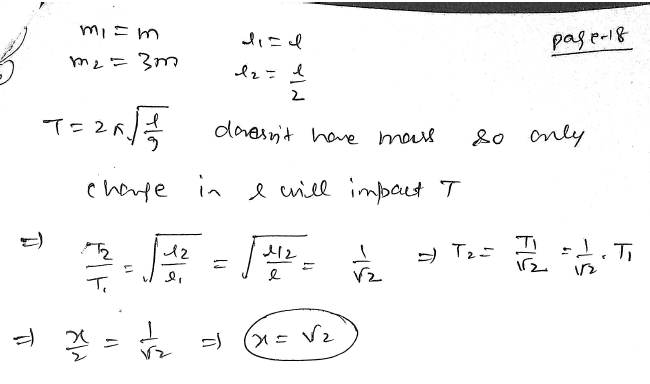 m₁ = m l₁ = l page-18
m₂ = 3m l₂ = l/2
T = 2π√(l/g) doesn't have mass so only
change in l will impact T
⇒ T₂/T₁ = √(l₂/l₁) = √((l/2)/l) = 1/√2 ⇒ T₂ = T₁/√2 = 1/√2 . T₁
⇒ x/2 = 1/√2 ⇒ x = √2